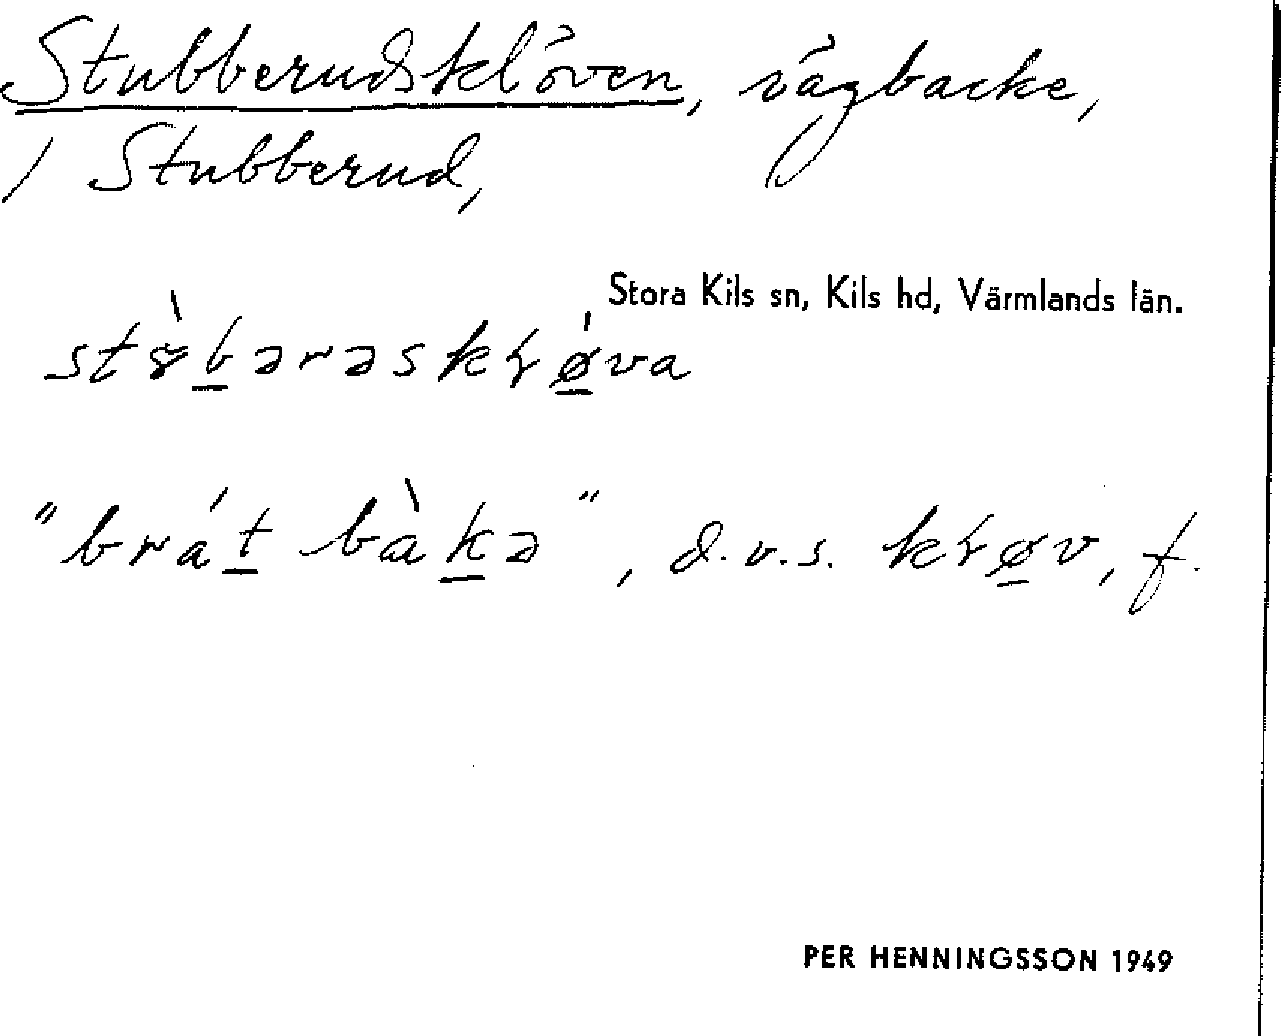 Stubberudsklöven, vägbacke,
/ Stubberud,
Stora Kils sn, Kils hd, Värmlands län.
"brát bàkə", d.v.s. kɽøv, f.
PER HENNINGSSON 1949